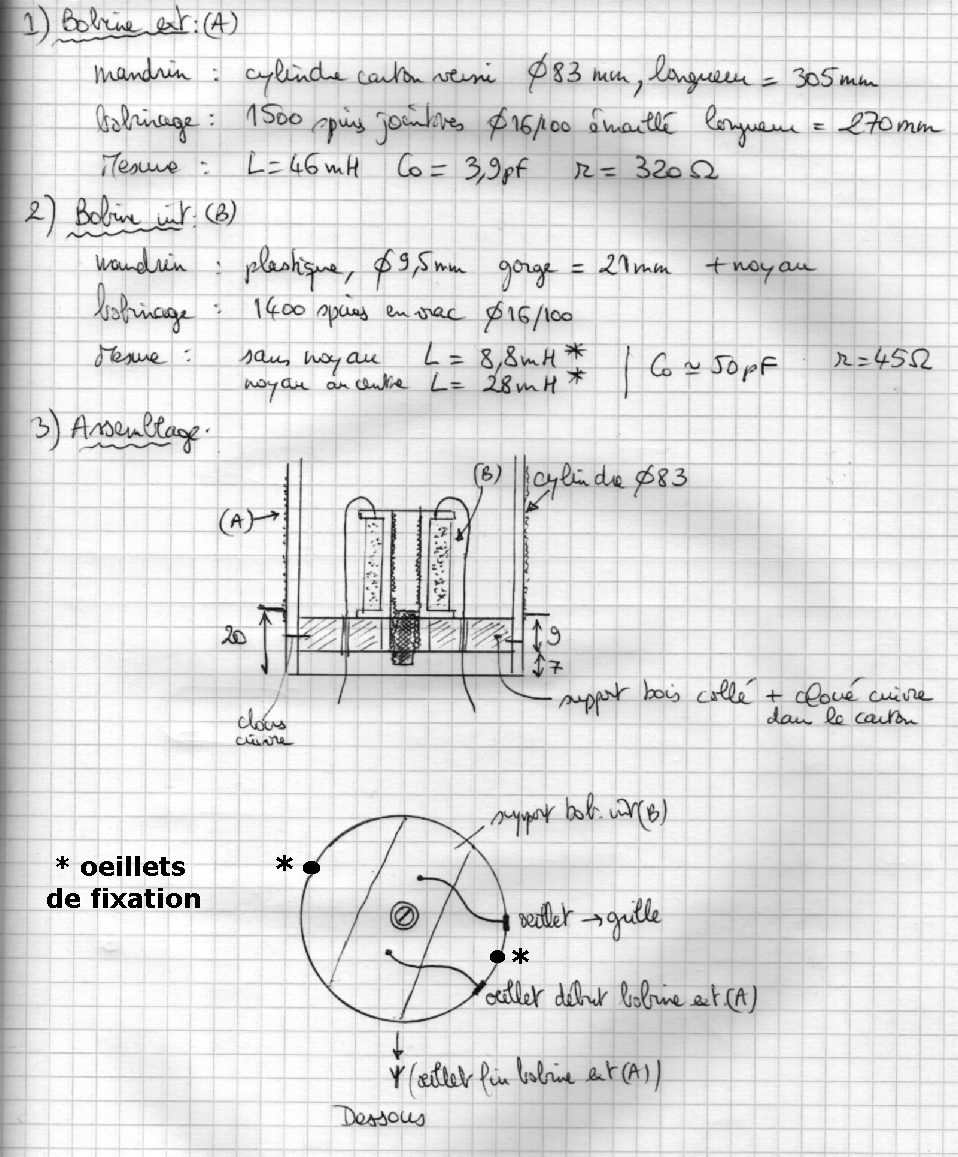 1) Bobine ext: (A)
mandrin : cylindre carton verni Ø83 mm, longueur = 305mm
bobinage : 1500 spires jointives Ø16/100 émaillé longueur = 270mm
Mesure : L=46mH Co = 3,9pf r = 320Ω
2) Bobine int: (B)
mandrin : plastique, Ø9,5mm gorge = 21mm + noyau
bobinage : 1400 spires en vrac Ø16/100
Mesure : sans noyau L = 8,8mH * | Co ≃ 50pF r=45Ω
noyau au centre L= 28mH *
3) Assemblage.
(B) cylindre Ø83
(A)
20 9
7
support bois collé + cloué cuivre
dans le carton
clous
cuivre
support bob. int (B)
* oeillets
de fixation
*
oeillet → grille
*
oeillet début bobine ext (A)
(oeillet fin bobine ext (A))
Dessous